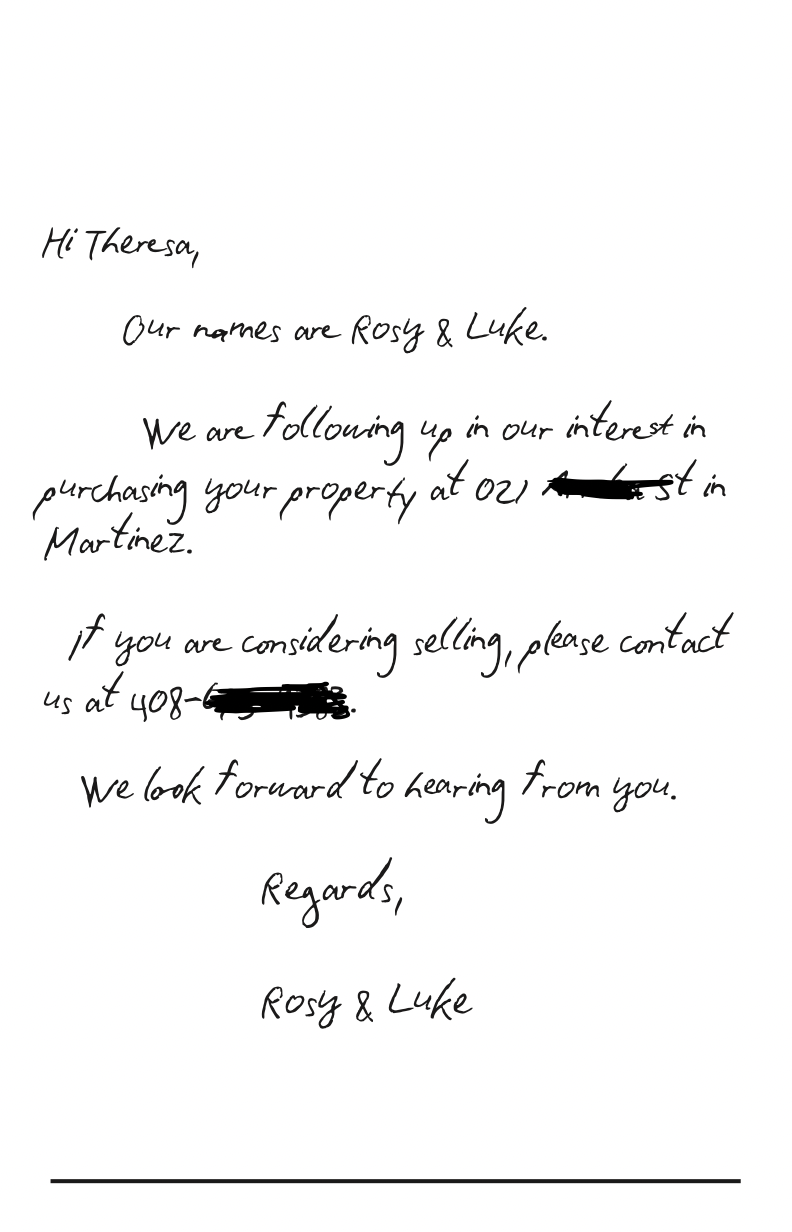 Hi Theresa,
Our names are Rosy & Luke.
We are following up in our interest in
purchasing your property at 021 St in
Martinez.
if you are considering selling, please contact
us at 408-
We look forward to hearing from you.
Regards,
Rosy & Luke